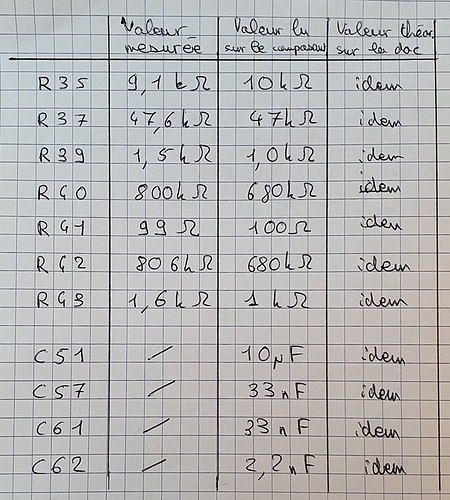 Valeur mesurée | Valeur lu sur le composant | Valeur théor. sur la doc
R35 | 9,1 kΩ | 10kΩ | idem
R37 | 47,6kΩ | 47kΩ | idem
R39 | 1,5kΩ | 1,0kΩ | idem
R40 | 800kΩ | 680kΩ | idem
R41 | 99Ω | 100Ω | idem
R42 | 806kΩ | 680kΩ | idem
R43 | 1,6kΩ | 1kΩ | idem
C51 | / | 10µF | idem
C57 | / | 33nF | idem
C61 | / | 33nF | idem
C62 | / | 2,2nF | idem